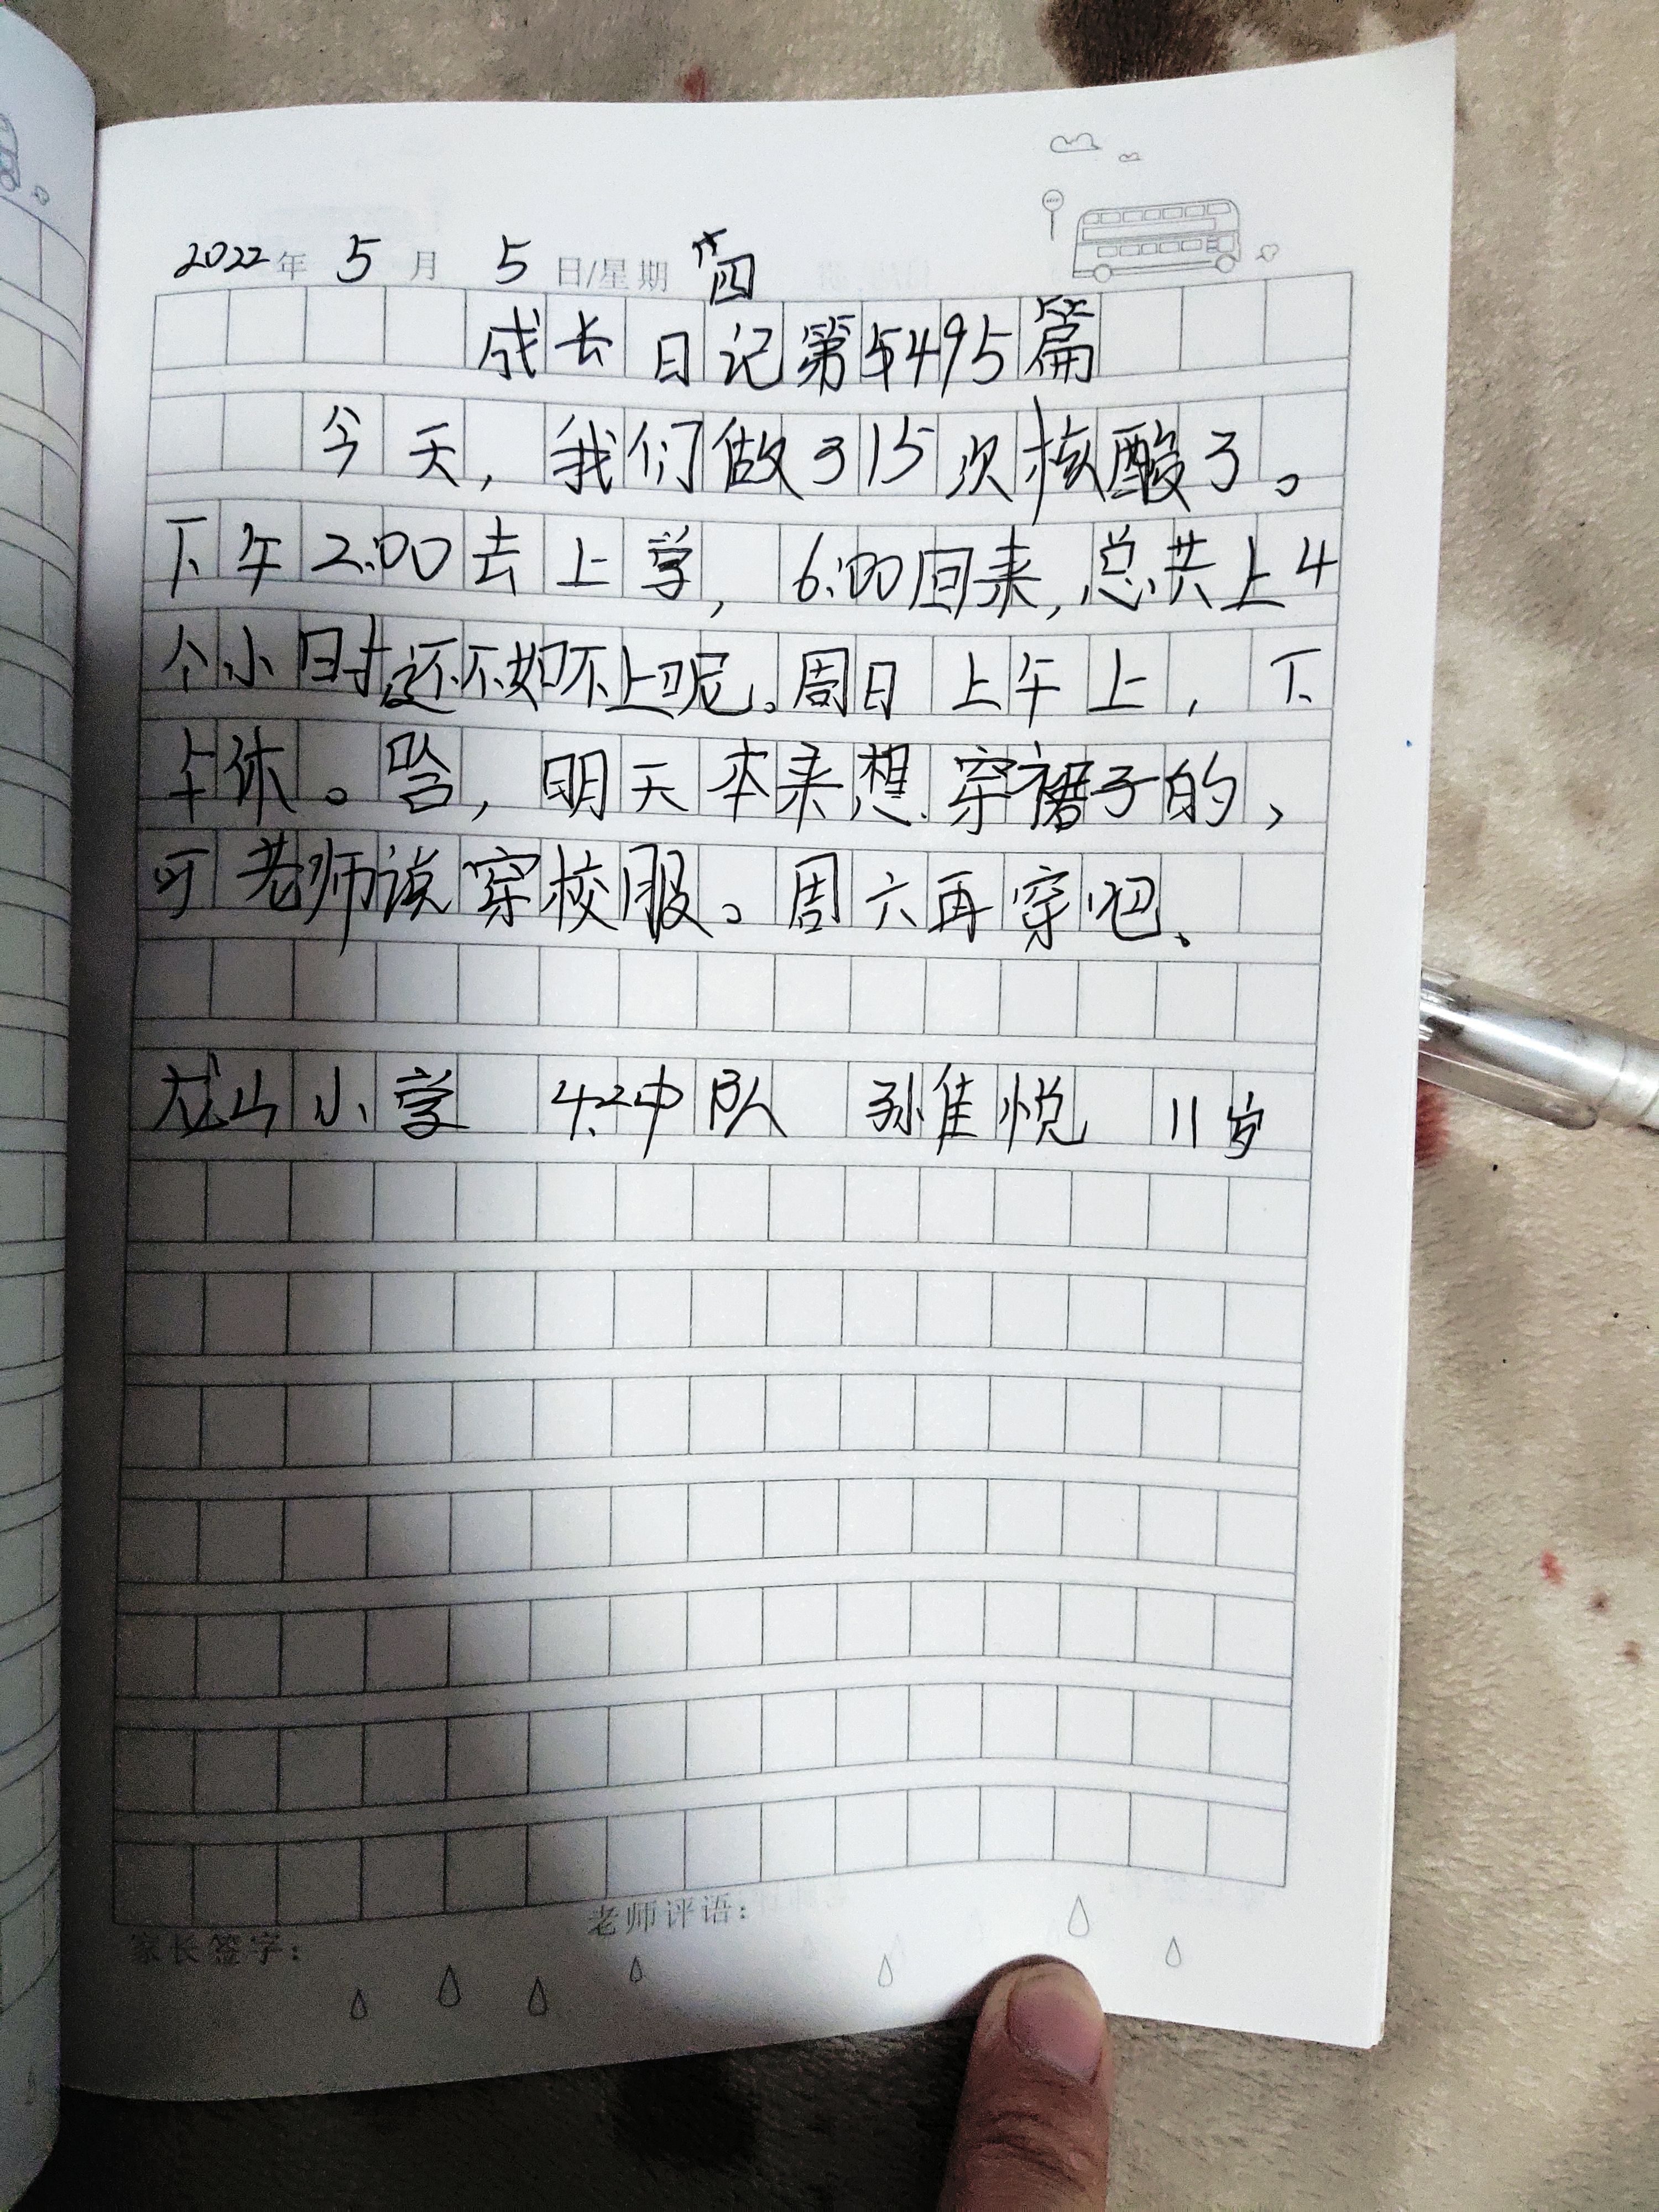 2022年 5月 5日/星期 四
成长日记第5495篇
今天,我们做了15次核酸了。
下午2:00去上学,6:00回来,总共上4
个小时,还不如不上呢。周日上午上,下
午休。哈,明天本来想穿裙子的,
可老师说穿校服。周六再穿吧、
龙山小学 4.2中队 孙佳悦 11岁
家长签字: 老师评语: